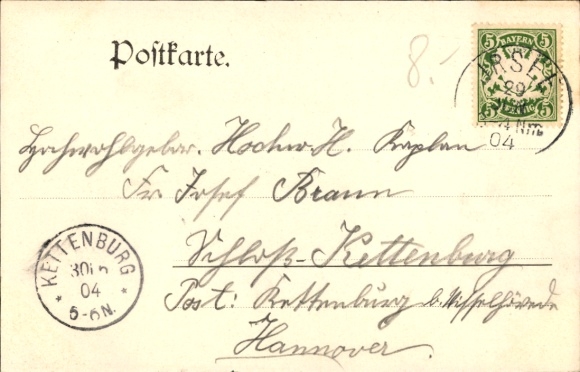 Postkarte.
8.-
5 BAYERN 5
5 PFENNIG 5
29
4 Nm
04
Hochwohlgebor. Hochw. H. Kaplan
Fr. Josef Braun
Schloß-Kettenburg
Post: Kettenburg b. Visselhövede
Hannover.
KETTENBURG
30
04
5-6N.